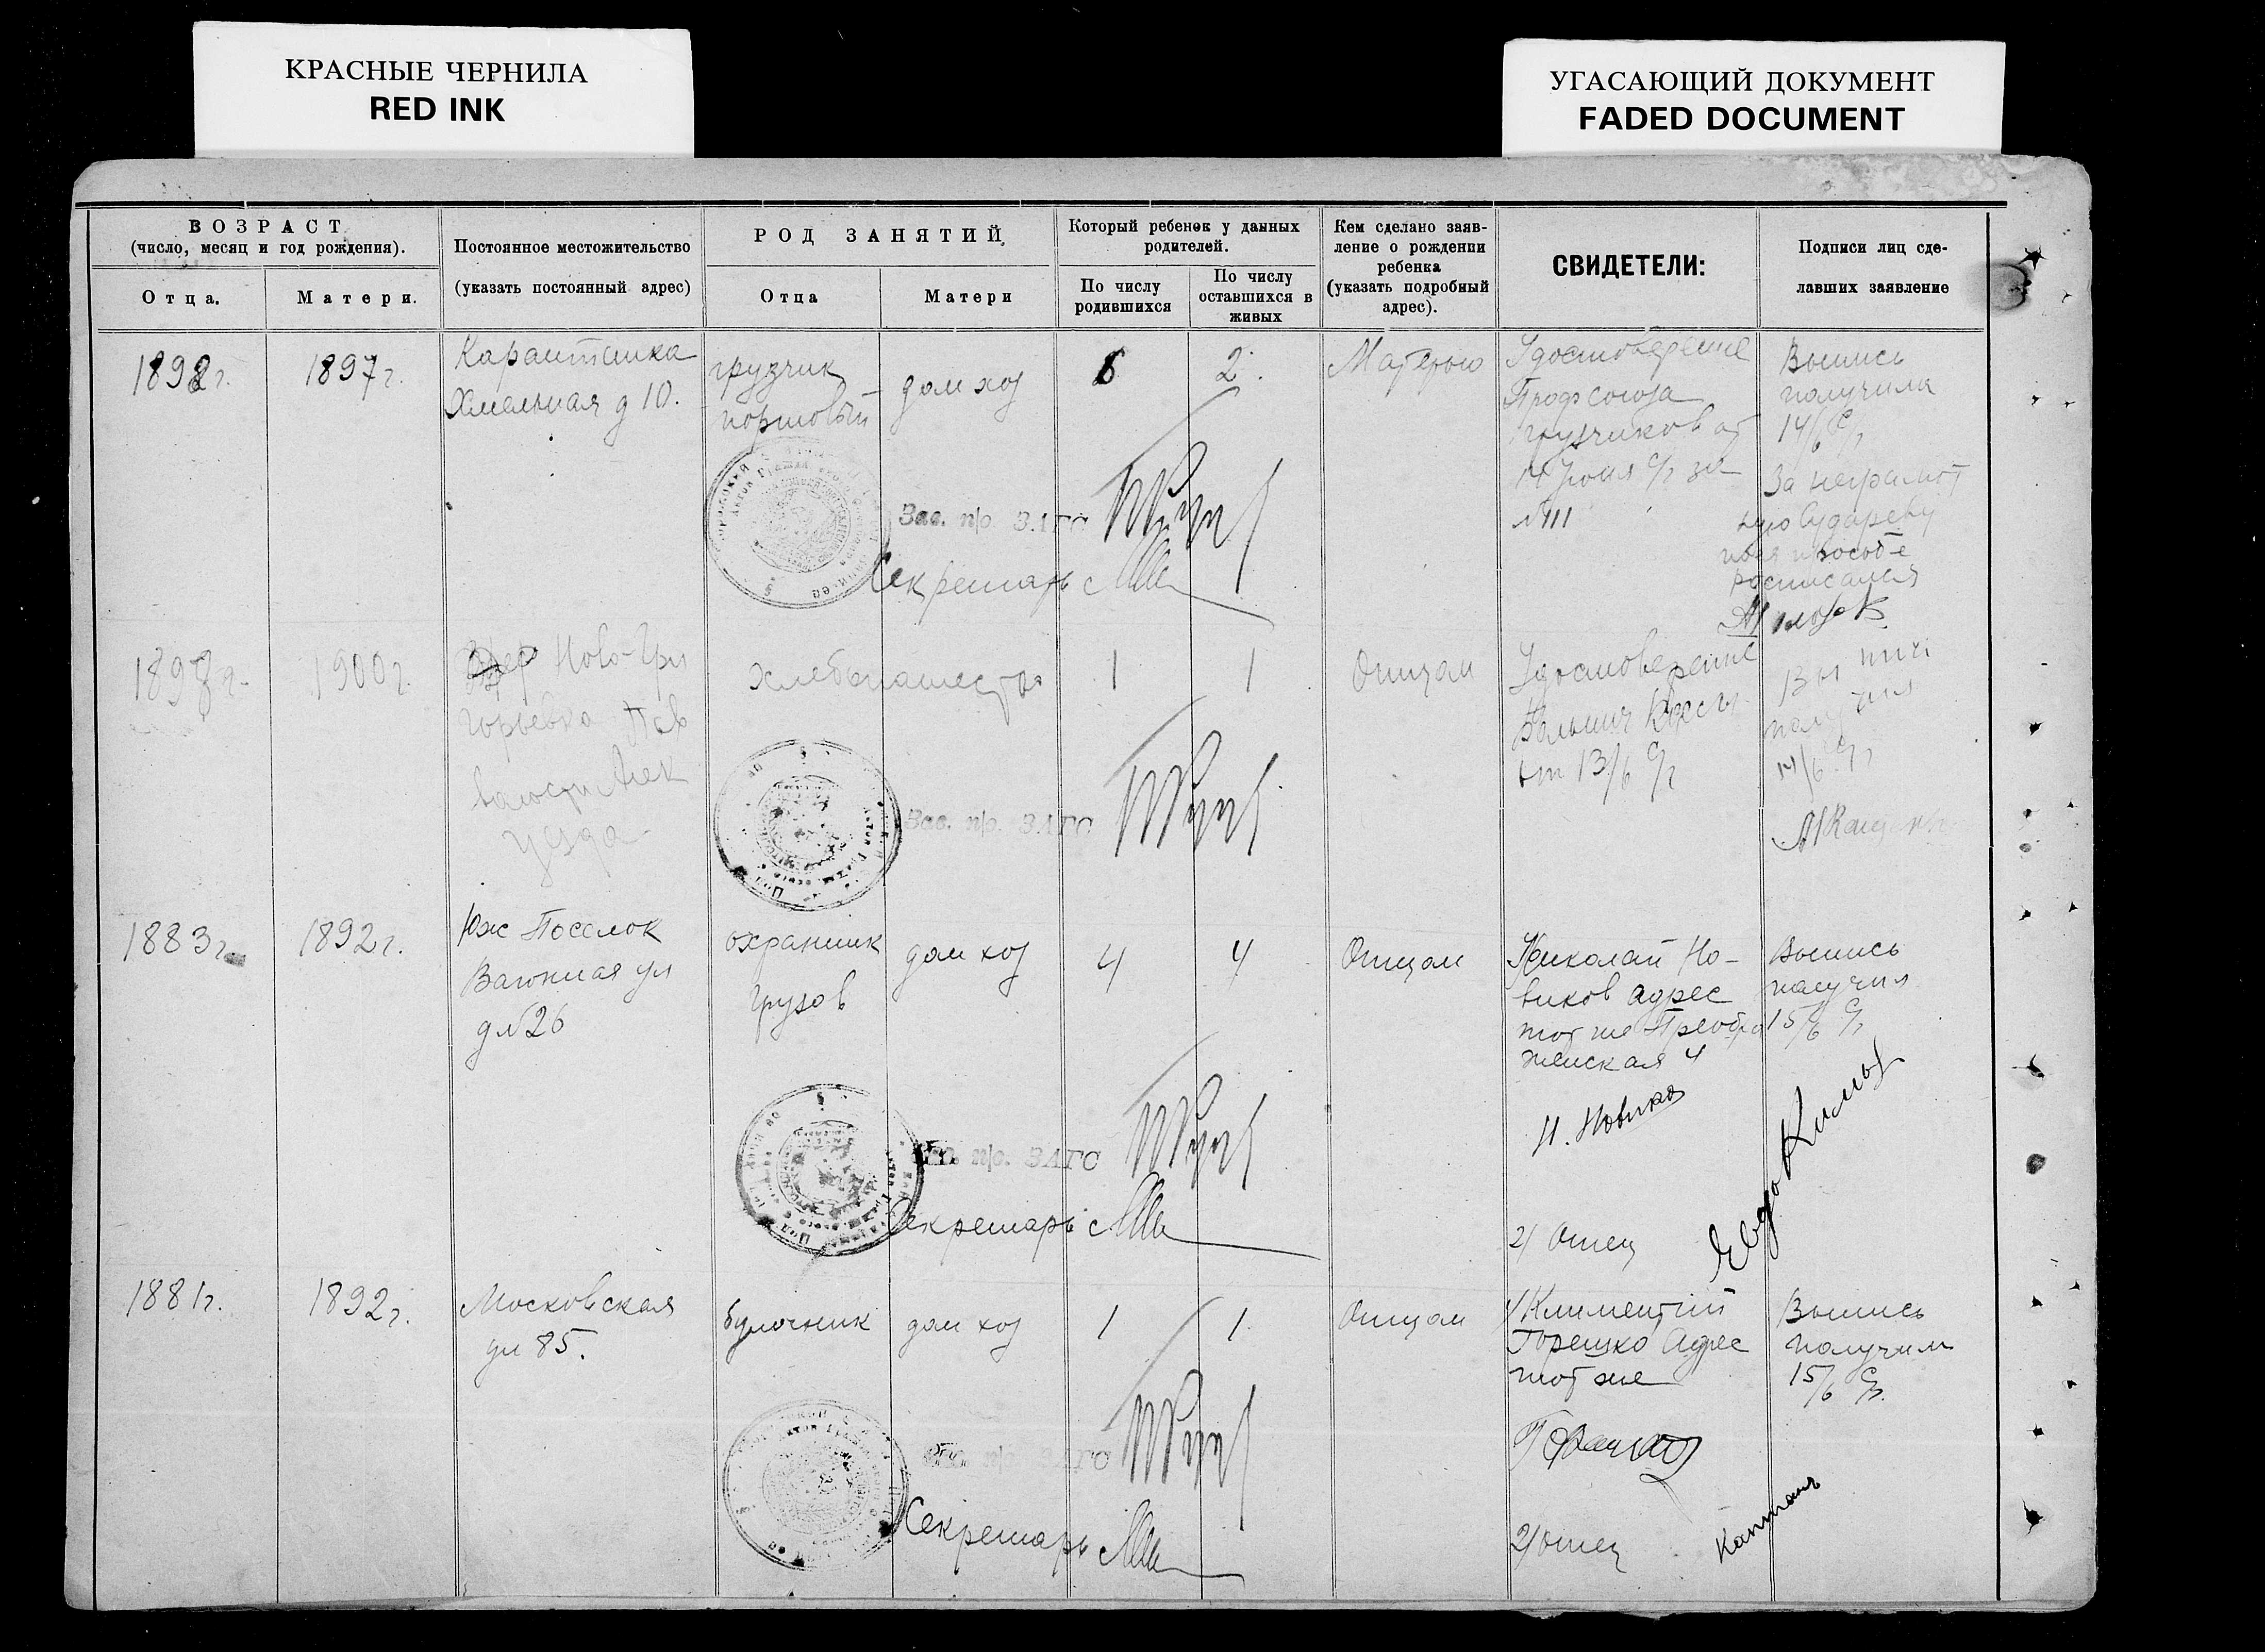 КРАСНЫЕ ЧЕРНИЛА
RED INK
УГАСАЮЩИЙ ДОКУМЕНТ
FADED DOCUMENT
ВОЗРАСТ
(число, месяц и год рождения).
Отца.
Матери.
Постоянное местожительство
(указать постоянный адрес)
РОД ЗАНЯТИЙ
Отца
Матери
Который ребенок у данных
родителей.
По числу
родившихся
По числу
оставшихся в
живых
Кем сделано заяв-
ление о рождении
ребенка
(указать подробный
адрес).
СВИДЕТЕЛИ:
Подписи лиц сде-
лавших заявление
1897г.
Карантинка
Хмельная д 10.
грузчик
портовый
дом хоз
2.
Матерью
Удостоверение
Профсоюза
грузчиков от
14 июня с/г за
№111
Выпись
получила
14/6 с/г
За неграмот
ную Судареву
росписался
Зав. п/о. ЗАГС
Секретарь
1900г.
Ново-Гри
горьевка
волости
уезда
хлебопашество
1
1
Отцом
Удостоверение
Больнич Кассы
от 13/6 с/г
14/6 с/г
Зав. п/о. ЗАГС
1883г.
1892г.
Юж Поселок
Вагонная ул
д №26
охранник
грузов
дом хоз
4
4
Отцом
Николай Но-
виков адрес
тот же Преобра
женская 4
Н. Новиков
2/ Отец
Выпись
получил
15/6 с/г
п/о. ЗАГС
Секретарь
1881г.
1892г.
Московская
ул 85.
булочник
дом хоз
1
1
Отцом
1/ Климентий
Горецко Адрес
тот же
2/ отец
Выпись
получил
15/6 с/г.
п/о ЗАГС
Секретарь